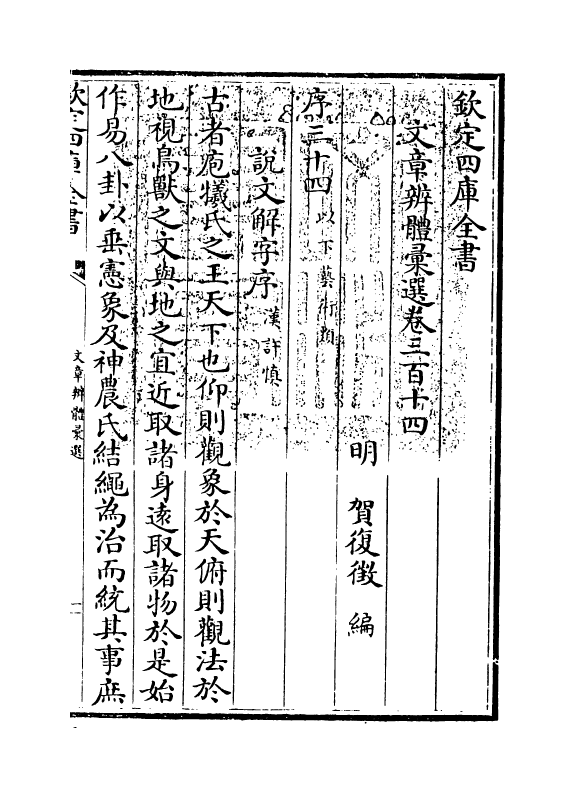 欽定四庫全書
文章辨體彙選卷三百十四
明 賀復徵 編
序三十四以下藝術類
說文解字序漢許慎
古者庖犧氏之王天下也仰則觀象於天俯則觀法於
地視鳥獸之文與地之宜近取諸身遠取諸物於是始
作易八卦以垂憲象及神農氏結繩為治而統其事庶
欽定四庫全書
文章辨體彙選